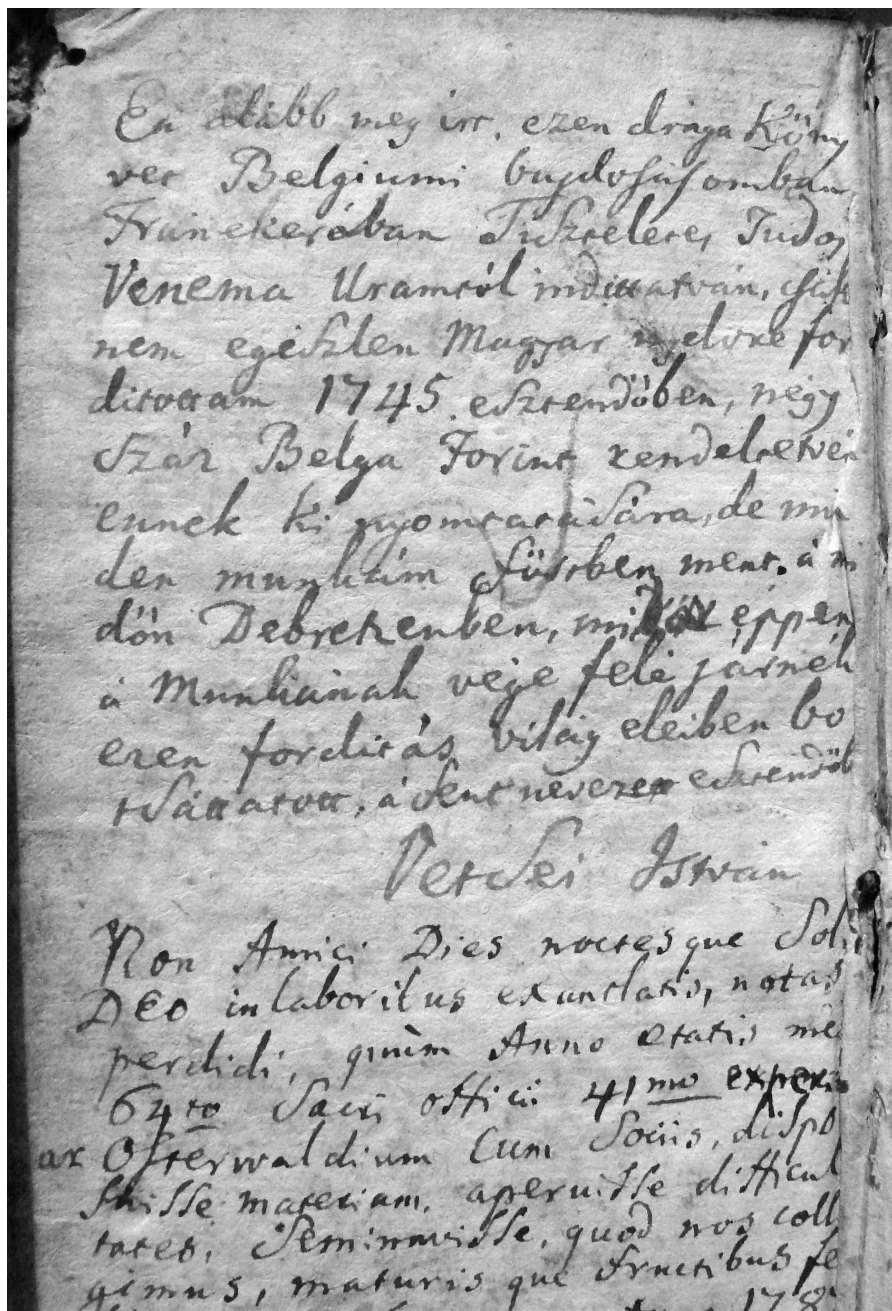 En alább meg irt, ezen drága Köny
vet Belgiumi bujdosásomban
Franekerában Tisztelete, Tudos
Venema Uramtól indittatván, csak
nem egészlen Magyar nyelvre for
ditottam 1745. esztendőben, négy
Száz Belga Forint rendeltetvén
ennek ki nyomtatására, de min
den munkám füstben ment. á mi
dőn Debretzenben, éppen
á Munkának vége felé járnék
ezen forditás világ eleiben bo
tsáttatott, á fent nevezett esztendőb
Vetsei István
Non Amici Dies noctesque Soli
DEO in laboribus exantlatis, notas
perdidi, quùm Anno etatis me
64to Sacri officii 41mo
ar Osterwaldium Cum Sociis, dispo
suisse materiam, aperuisse difficul
tates, Seminavisse, quod nos coll
gimus, maturis que fructibus fe